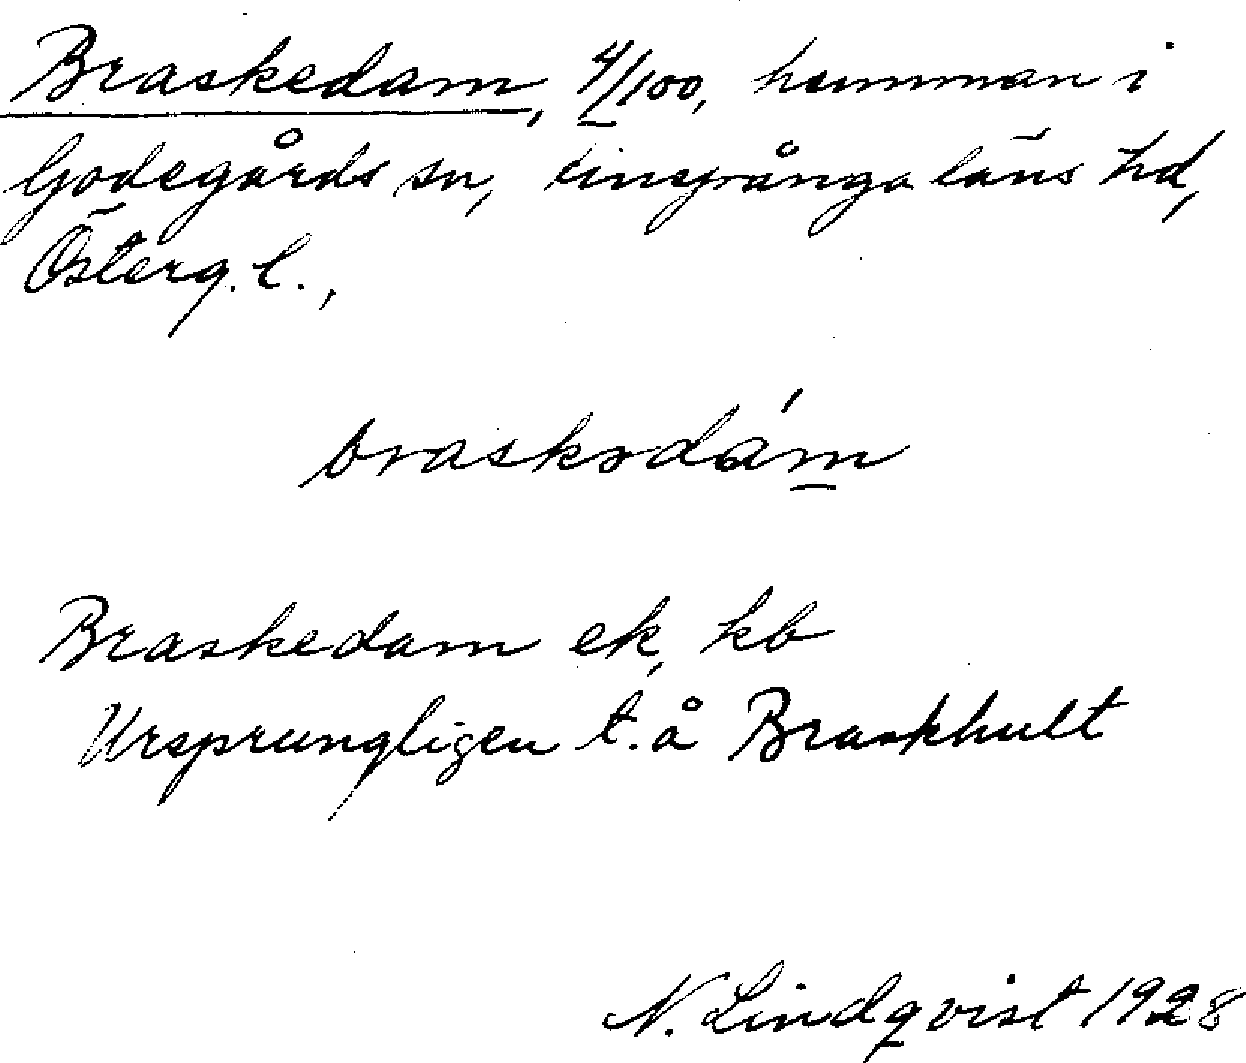 Braskedam, 4/100, hemman i
Godegårds sn, Finspånga läns hd,
Österg. l.,
braskədám
Braskedam ek, kb
Ursprungligen t. å Braskhult
N. Lindqvist 1928